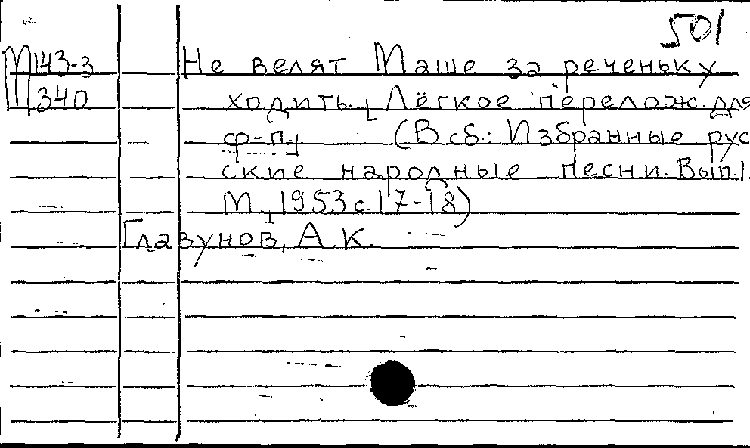 501
М143-3 Не велят Маше за реченьку
340 ходить. [Лёгкое перелож. для
ф-п.] (В сб.: Избранные рус
ские народные песни. Вып.1.
М., 1953 с.17-18)
Глазунов, А.К.